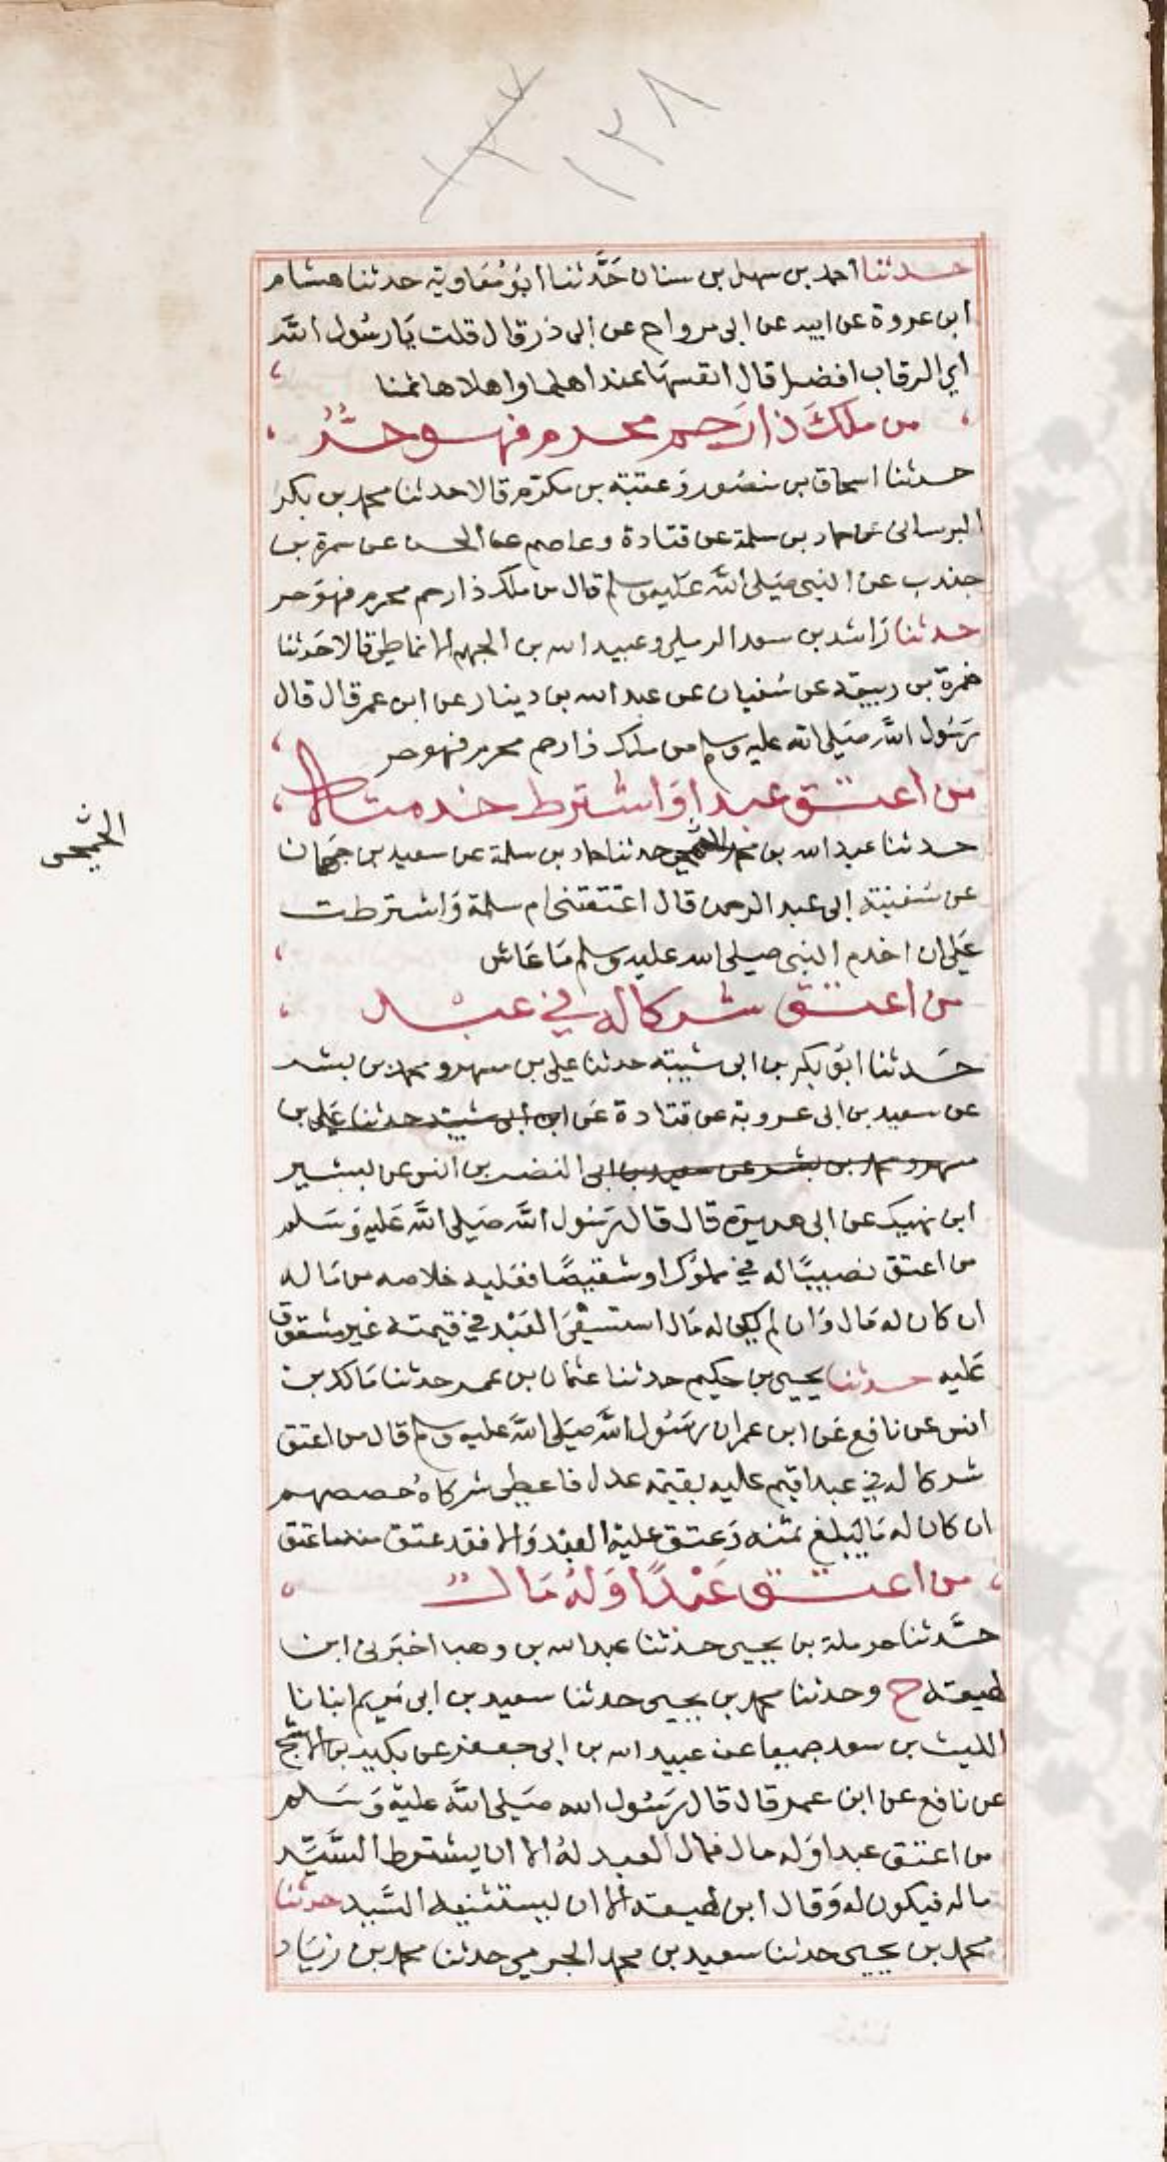 ١٣٧
١٣٨
حدثنا احمد بن سهل بن سنان حَدَّثنا ابُو مُعَاوية حدثنا هشام
ابن عروة عن ابيه عن ابى مرواح عن ابى ذر قال قلت يَا رسُول اللَّه
اي الرقاب افضل قال انفسهَا عند اهلها واهلاها ثمنا
من ملكَ ذا رَحم محرم فهو حُرٌّ
حدثنا اسحاق بن منصُور وَعقبة بن مكرم قالا حدثنا محمد بن بكر
البرسانى عن حماد بن سلمة عن قتادة وعاصم عن الحسن عن سمرة بن
جندب عن النبى صَلى اللَّه عَليه وسلم قال من ملك ذا رحم محرم فهوَ حر
حدثنا رَاشد بن سعد الرملي وعبيد الله بن الجهم الانماطي قالا حَدثنا
ضمرة بن ربيعة عن سُفيان عن عبد الله بن دينار عن ابن عمر قال قال
رَسُول اللَّه صَلى الله عليه وسلم من ملك ذا رحم محرم فهو حر
من اعتق عبدا وَاشترط خدمته
حدثنا عبد الله بن محمد حدثنا حماد بن سلمة عن سعيد بن جمهان
الجمحى
عن سَفينة ابى عبد الرحمن قال اعتقتنى ام سلمة وَاشترطت
عَلى ان اخدم النبى صلى الله عليه وسلم مَا عَاش
من اعتق شركا له في عبد
حَدثنا ابُو بكر بن ابى شيبة حدثنا علي بن مسهر و محمد بن بشر
عن سعيد بن ابى عروبة عن قتادة عَن ابن ابى شيبة حدثنا عَلى بن
مسهر و محمد بن بشر عن سعيد بن ابى النضر بن انس عن بشير
ابن نهيك عن ابى هريرَة قال قال رَسُول اللَّه صَلى اللَّه عَليه وَسَلم
من اعتق نصيبًا له في مملوك او شقيصًا فعَليه خلاصه من مَاله
ان كان له مَال وَان لم يكن له مَال استسعَى العَبْد في قيمته غير مشقوق
عَليه حدثنا يحيى بن حكيم حدثنا عثمان بن عمر حدثنا مَالك بن
انس عن نافع عَن ابن عمر ان رَسُول اللَّه صَلى اللَّه عليه وسلم قال من اعتق
شركا له في عبد اقيم عليه بقيمة عدل فاعطى شركاهُ حصصهم
ان كان له مَا يَبلغ ثمنه وَعتق عليهْ العبْد وَالا فقد عتق منه ما عتق
من اعتق عَبْدًا وَلهُ مَالٌ
حَدَّثنا حرملة بن يحيى حدثنا عبد الله بن وهب اخبَرنى ابن
لهيعة ح وحدثنا محمد بن يحيى حدثنا سعيد بن ابى مَريم انبانا
الليث بن سعد جميعا عن عبيد الله بن ابى جعفر عن بكير بن الاشج
عن نافع عن ابن عمر قال قال رَسُول الله صَلى اللَّه عليهْ وَسَلم
من اعتق عبدا وَله مال فمال العبد لهُ الا ان يشترط السَّيِّد
ماله فيكون له وَقال ابن لهيعة الا ان يستثنيه السَّيد حدثنا
محمد بن يحيى حدثنا سعيد بن محمد الجرمي حدثنا محمد بن زيَاد